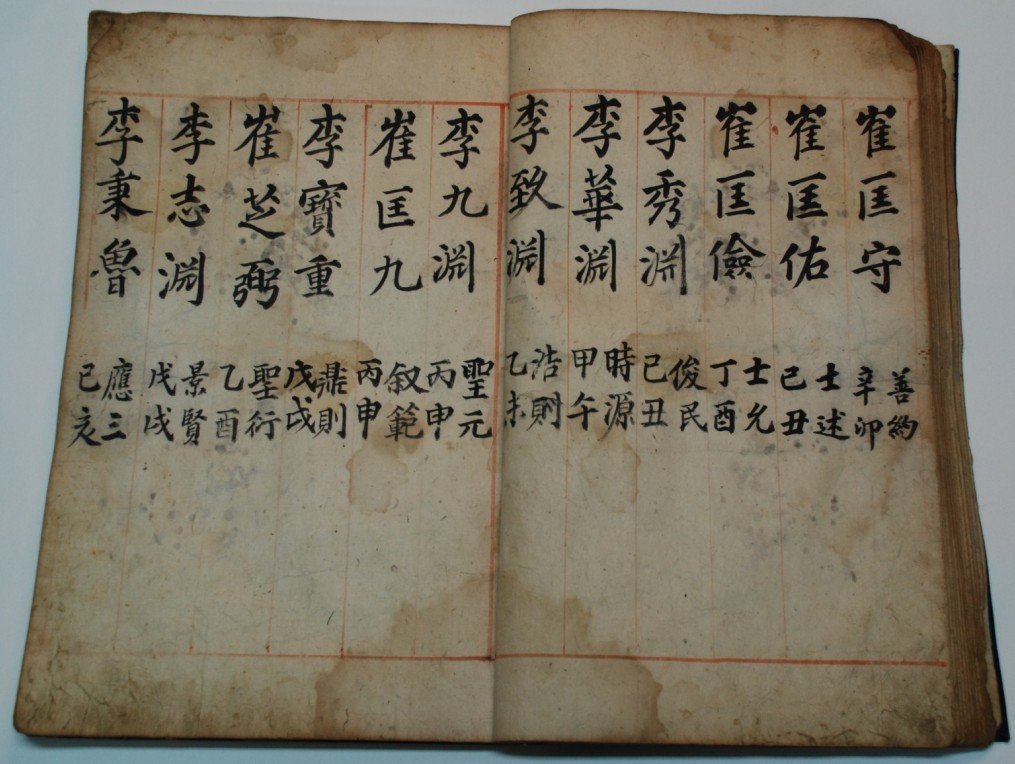 崔匡守
善約
辛卯
崔匡佑
士述
己丑
崔匡儉
士允
丁酉
李秀淵
俊民
己丑
李華淵
時源
甲午
李致淵
浩則
乙未
李九淵
聖元
丙申
崔匡九
叙範
丙申
李寶重
鼎則
戊戌
崔芝弼
聖衍
乙酉
李志淵
景賢
戊戌
李秉魯
應三
己亥